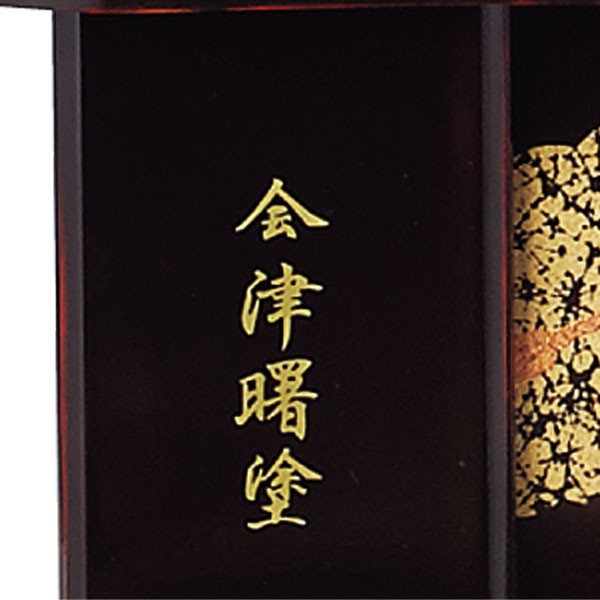 会津曙塗